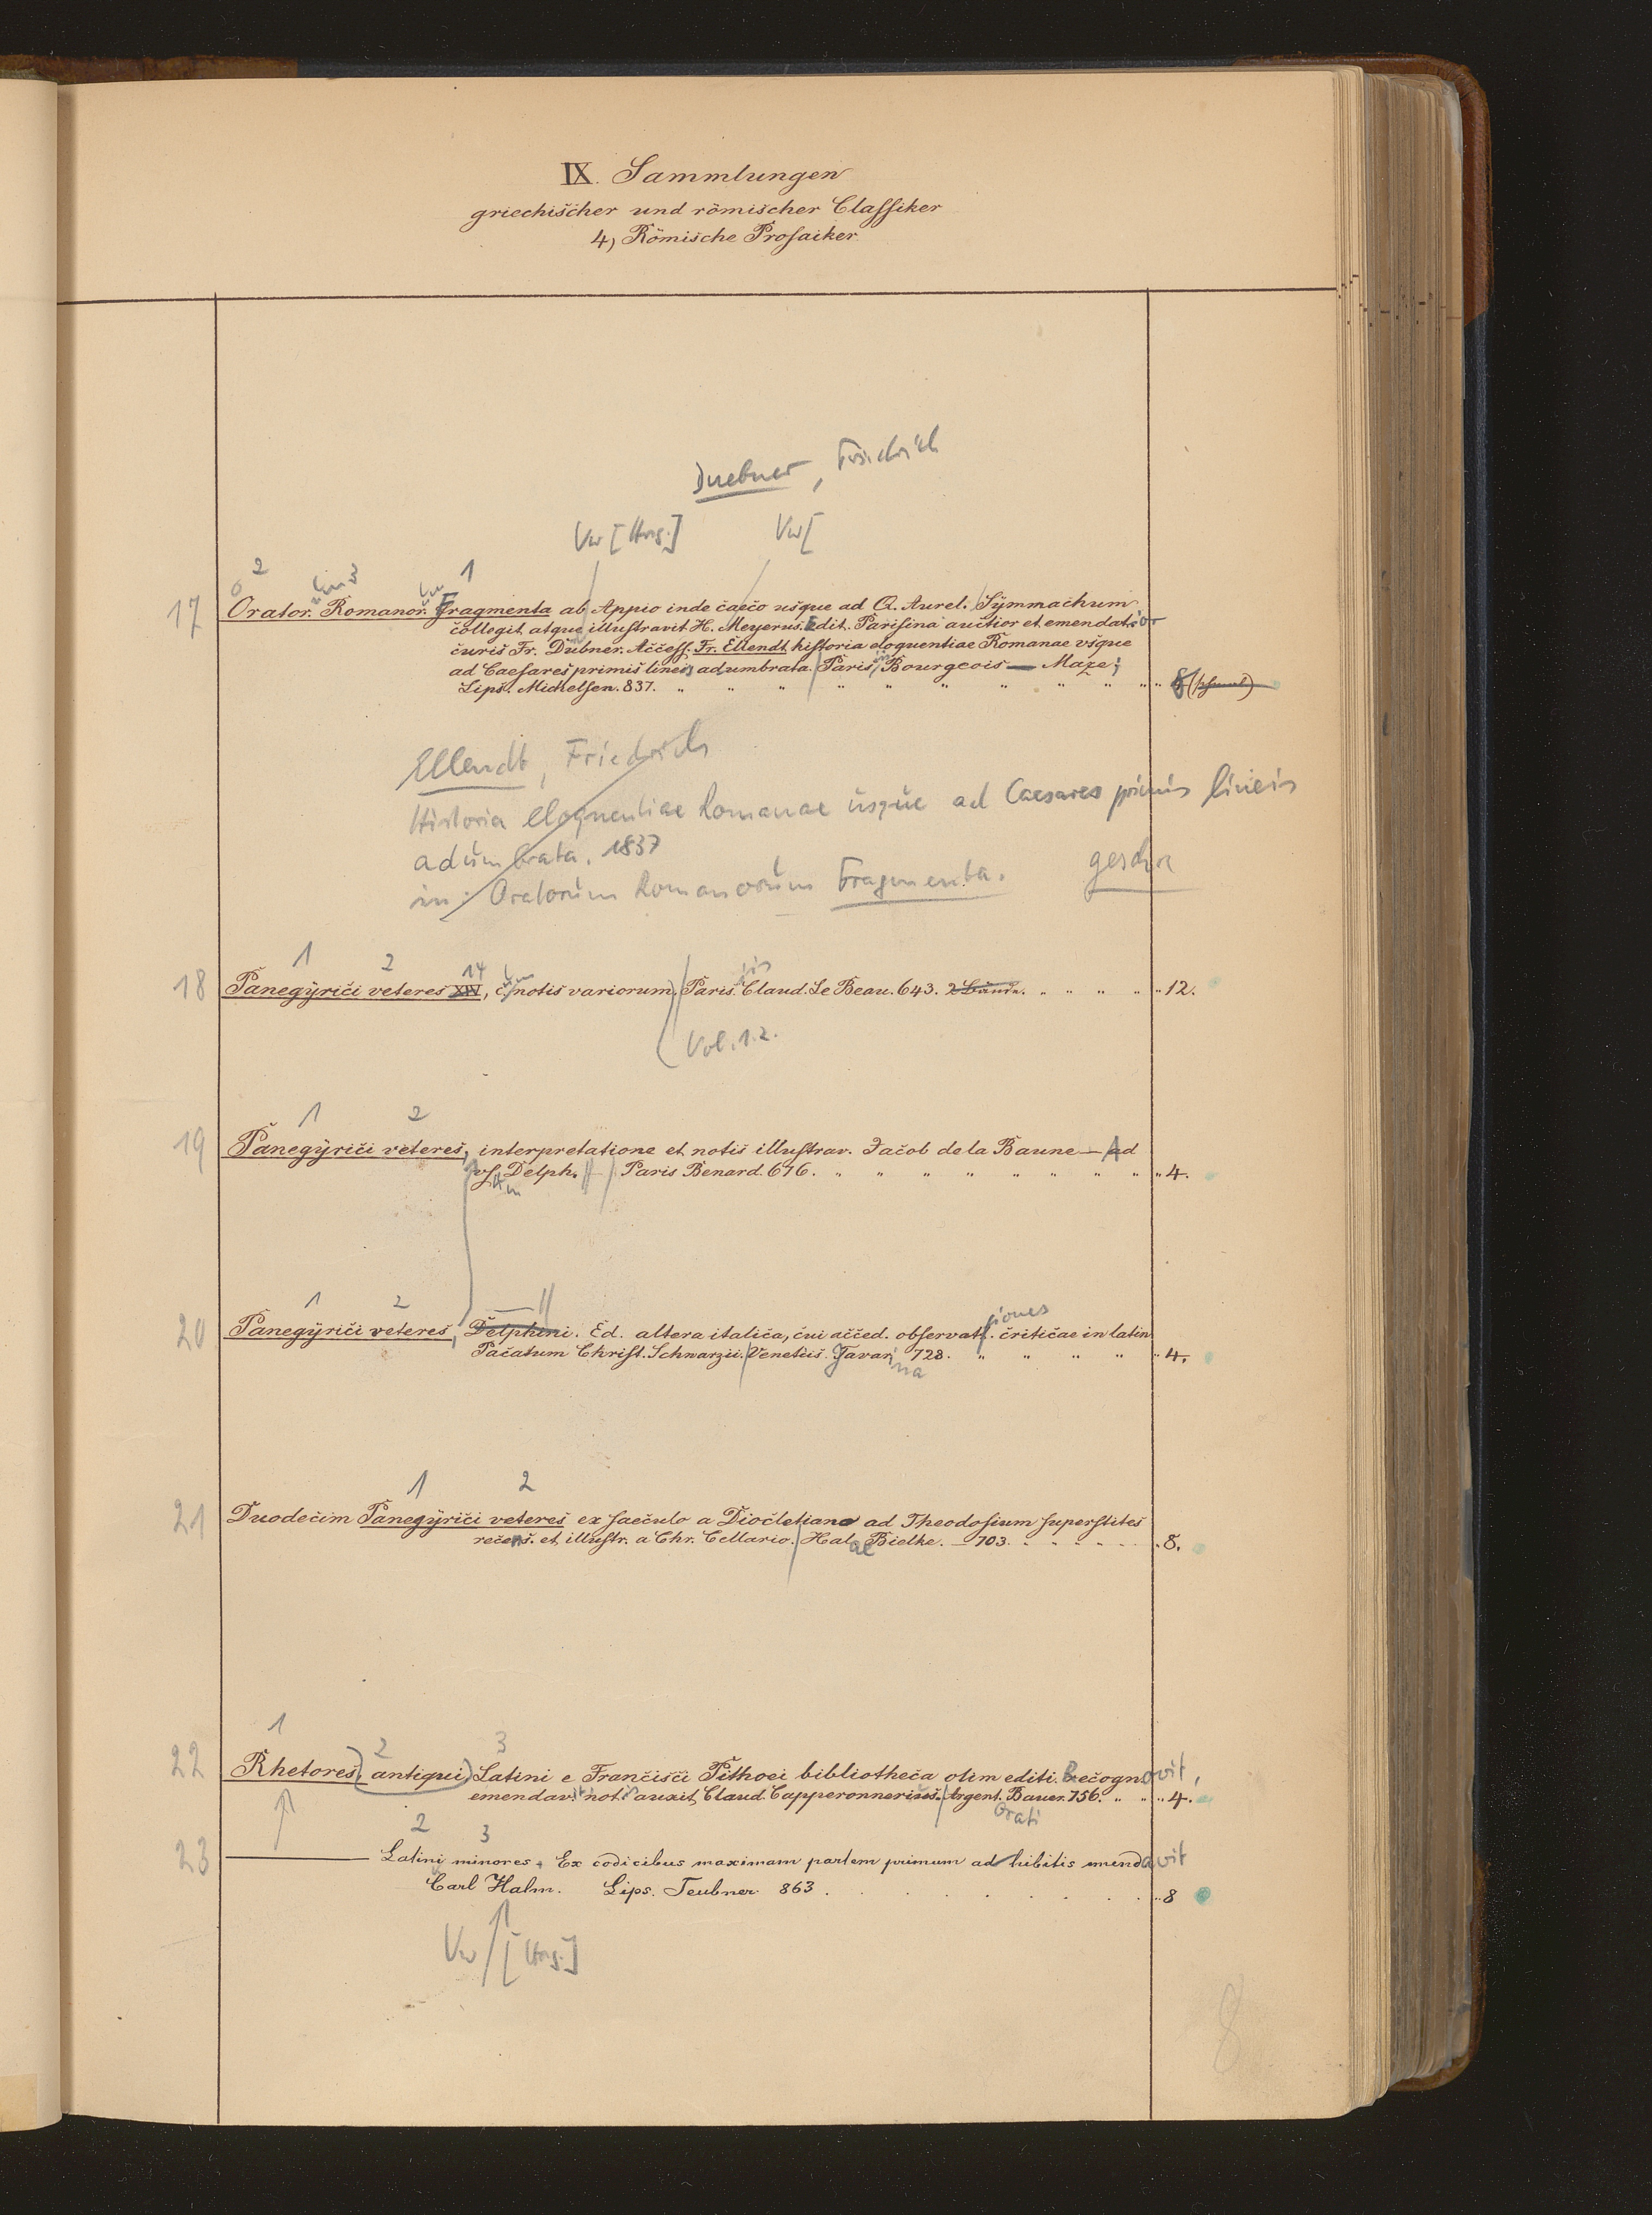 IX. Sammlungen
griechischer und römischer Classiker
4, Römische Prosaiker
Duebner, Friedrich
Vw [Hrsg.] Vw [
2 3 1
17 Orator. Romanor. Fragmenta ab Appio inde caeco usque ad Q. Aurel. Symmachum
collegit atque illustravit H. Meyerus. Edit. Parisina auctior et emendatior
curis Fr. Dübner. Access. Fr. Ellendt historia eloquentiae Romanae usque
ad Caesares primis lineis adumbrata. Paris, Bourgeois — Maze;
Lips. Michelsen. 837. 8
Ellendt, Friedrich
Historia eloquentiae Romanae usque ad Caesares primis lineis
adumbrata. 1837
in: Oratorum Romanorum Fragmenta. geschr
1 2 14
18 Panegyrici veteres XIV, c. notis variorum. Parisiis Claud. Le Beau. 643. 2 Bände. 12.
Vol. 1.2.
1 2
19 Panegyrici veteres, interpretatione et notis illustrav. Jacob de la Baune — Ad
us. Delph. Paris Benard. 676. 4.
1 2
20 Panegyrici veteres, Delphini. Ed. altera italica, cui acced. observationes criticae in latin
Pacatum Christ. Schwarzii. Venetiis. Javarina 728. 4.
1 2
21 Duodecim Panegyrici veteres ex saeculo a Diocletiano ad Theodosium superstites
recens. et illustr. a Chr. Cellario. Halae Bielke. — 703. 8.
1 2 3
22 Rhetores, antiqui, Latini e Francisci Pithoei bibliotheca olim editi. Recognovit,
emendavit not. auxit Claud. Capperonnerius. Argent. Bauer. 756. 4.
2 3
23 — Latini minores. Ex codicibus maximam partem primum adhibitis emendavit
Carl Halm. Lips. Teubner 863. 8
Vw [Hrsg.]
8